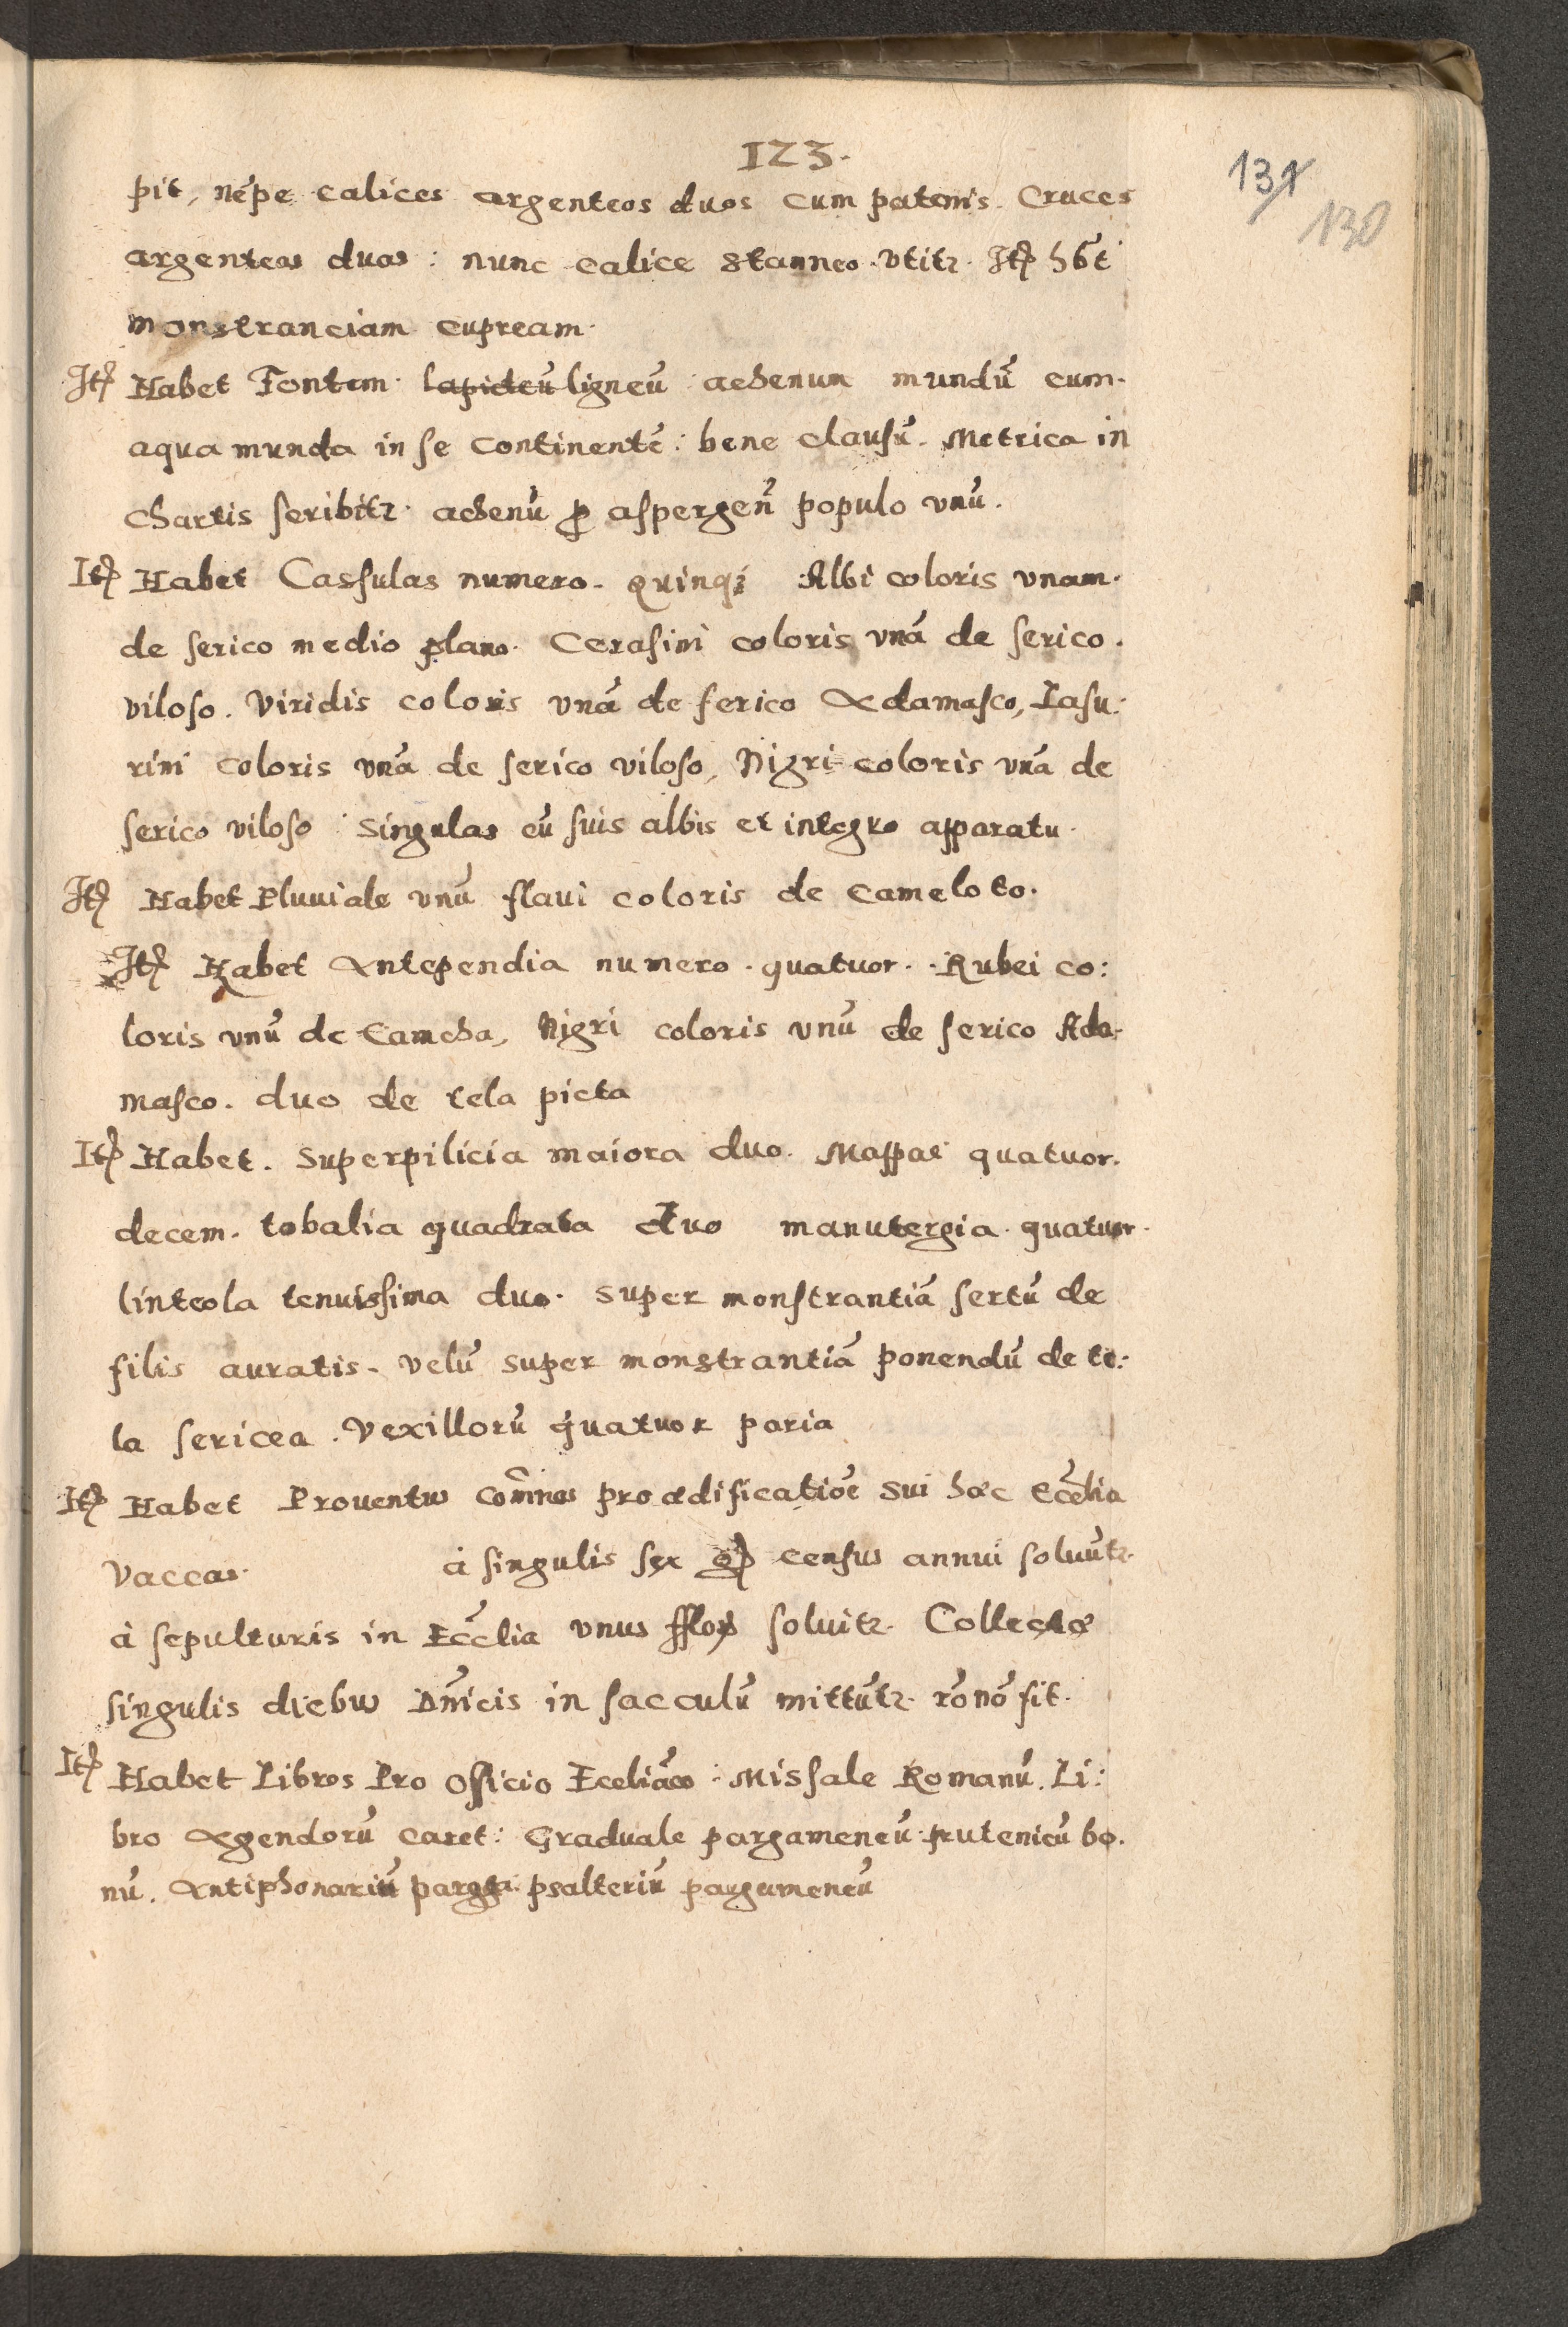 123.
131
130
pit, nēpe calices argenteos duos cum patenis. Cruces
argenteas duas : nunc calice stanneo vtitr. Itē hēt
monstranciam cupream.
Itē Habet Fontem lapideū ligneū achenum mundū cum.
aqua munda in se continentē : bene clausū. Metrica in
chartis scribitr. achenū ꝓ aspergeñ populo vnū.
Itē Habet Cassulas numero. quinqꝫ Albi coloris vnam.
de serico medio plano. Cerasini coloris vnā de serico.
viloso. Viridis coloris vnā de serico Adamasco, Lasu:
rini coloris vnā de serico viloso, Nigri coloris vnā de
serico viloso singulas cū suis albis et integro apparatu.
Itē Habet Pluuiale vnū flaui coloris de cameloto.
Itē Habet Antependia numero. quatuor. Rubei co:
loris vnū de camcha, Nigri coloris vnū de serico Ada-
masco. duo de tela picta
Itē Habet. Superpilicia maiora duo. Mappae quatuor.
decem. tobalia quadrata duo manutergia quatuor.
linteola tenuissima duo. super monstrantiā sertū de
filis auratis. velū super monstrantiā ponendū de te:
la sericea. vexillorū quatuor paria
Itē Habet Prouentus com̃nes pro ædificatiōe sui hæc Eccēlia
vaccas. à singulis sex gꝫ census annui soluūtr.
à sepulturis in Eccēlia vnus fflor soluitr. Collectæ
singulis diebus Dn̄icis in sacculū mittūtr. rō nō fit.
Itē Habet Libros Pro officio Eccliāco : Missale Romanū. Li:
bro Agendorū caret : Graduale pargameneū prutenicū bo.
nū. Antiphonariū psalteriū pargameneū